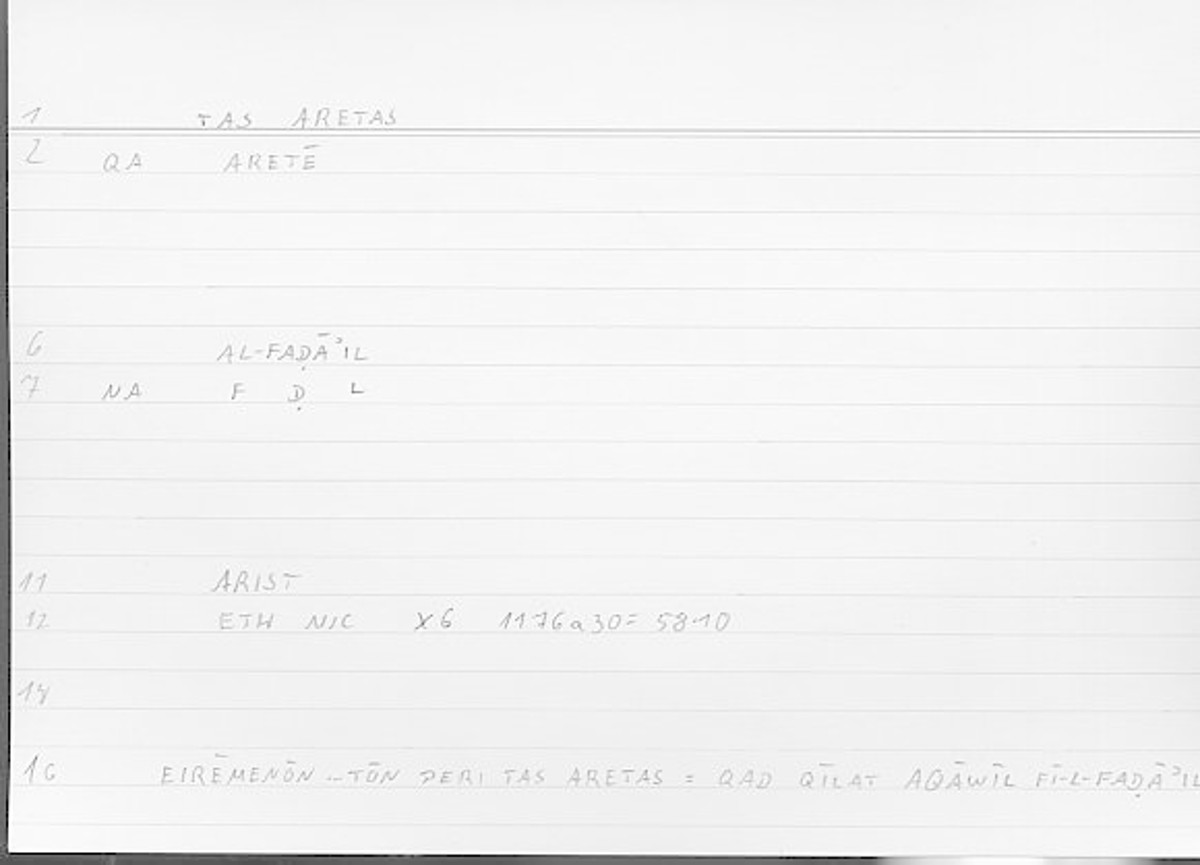 1 TAS ARETAS
2 QA ARETĒ
6 AL-FAḌĀʾIL
7 NA F Ḍ L
11 ARIST
12 ETH NIC X6 1176a30= 58-10
14
16 EIRĒMENŌN ... TŌN PERI TAS ARETAS = QAD QĪLAT AQĀWĪL FĪ-L-FAḌĀʾIL